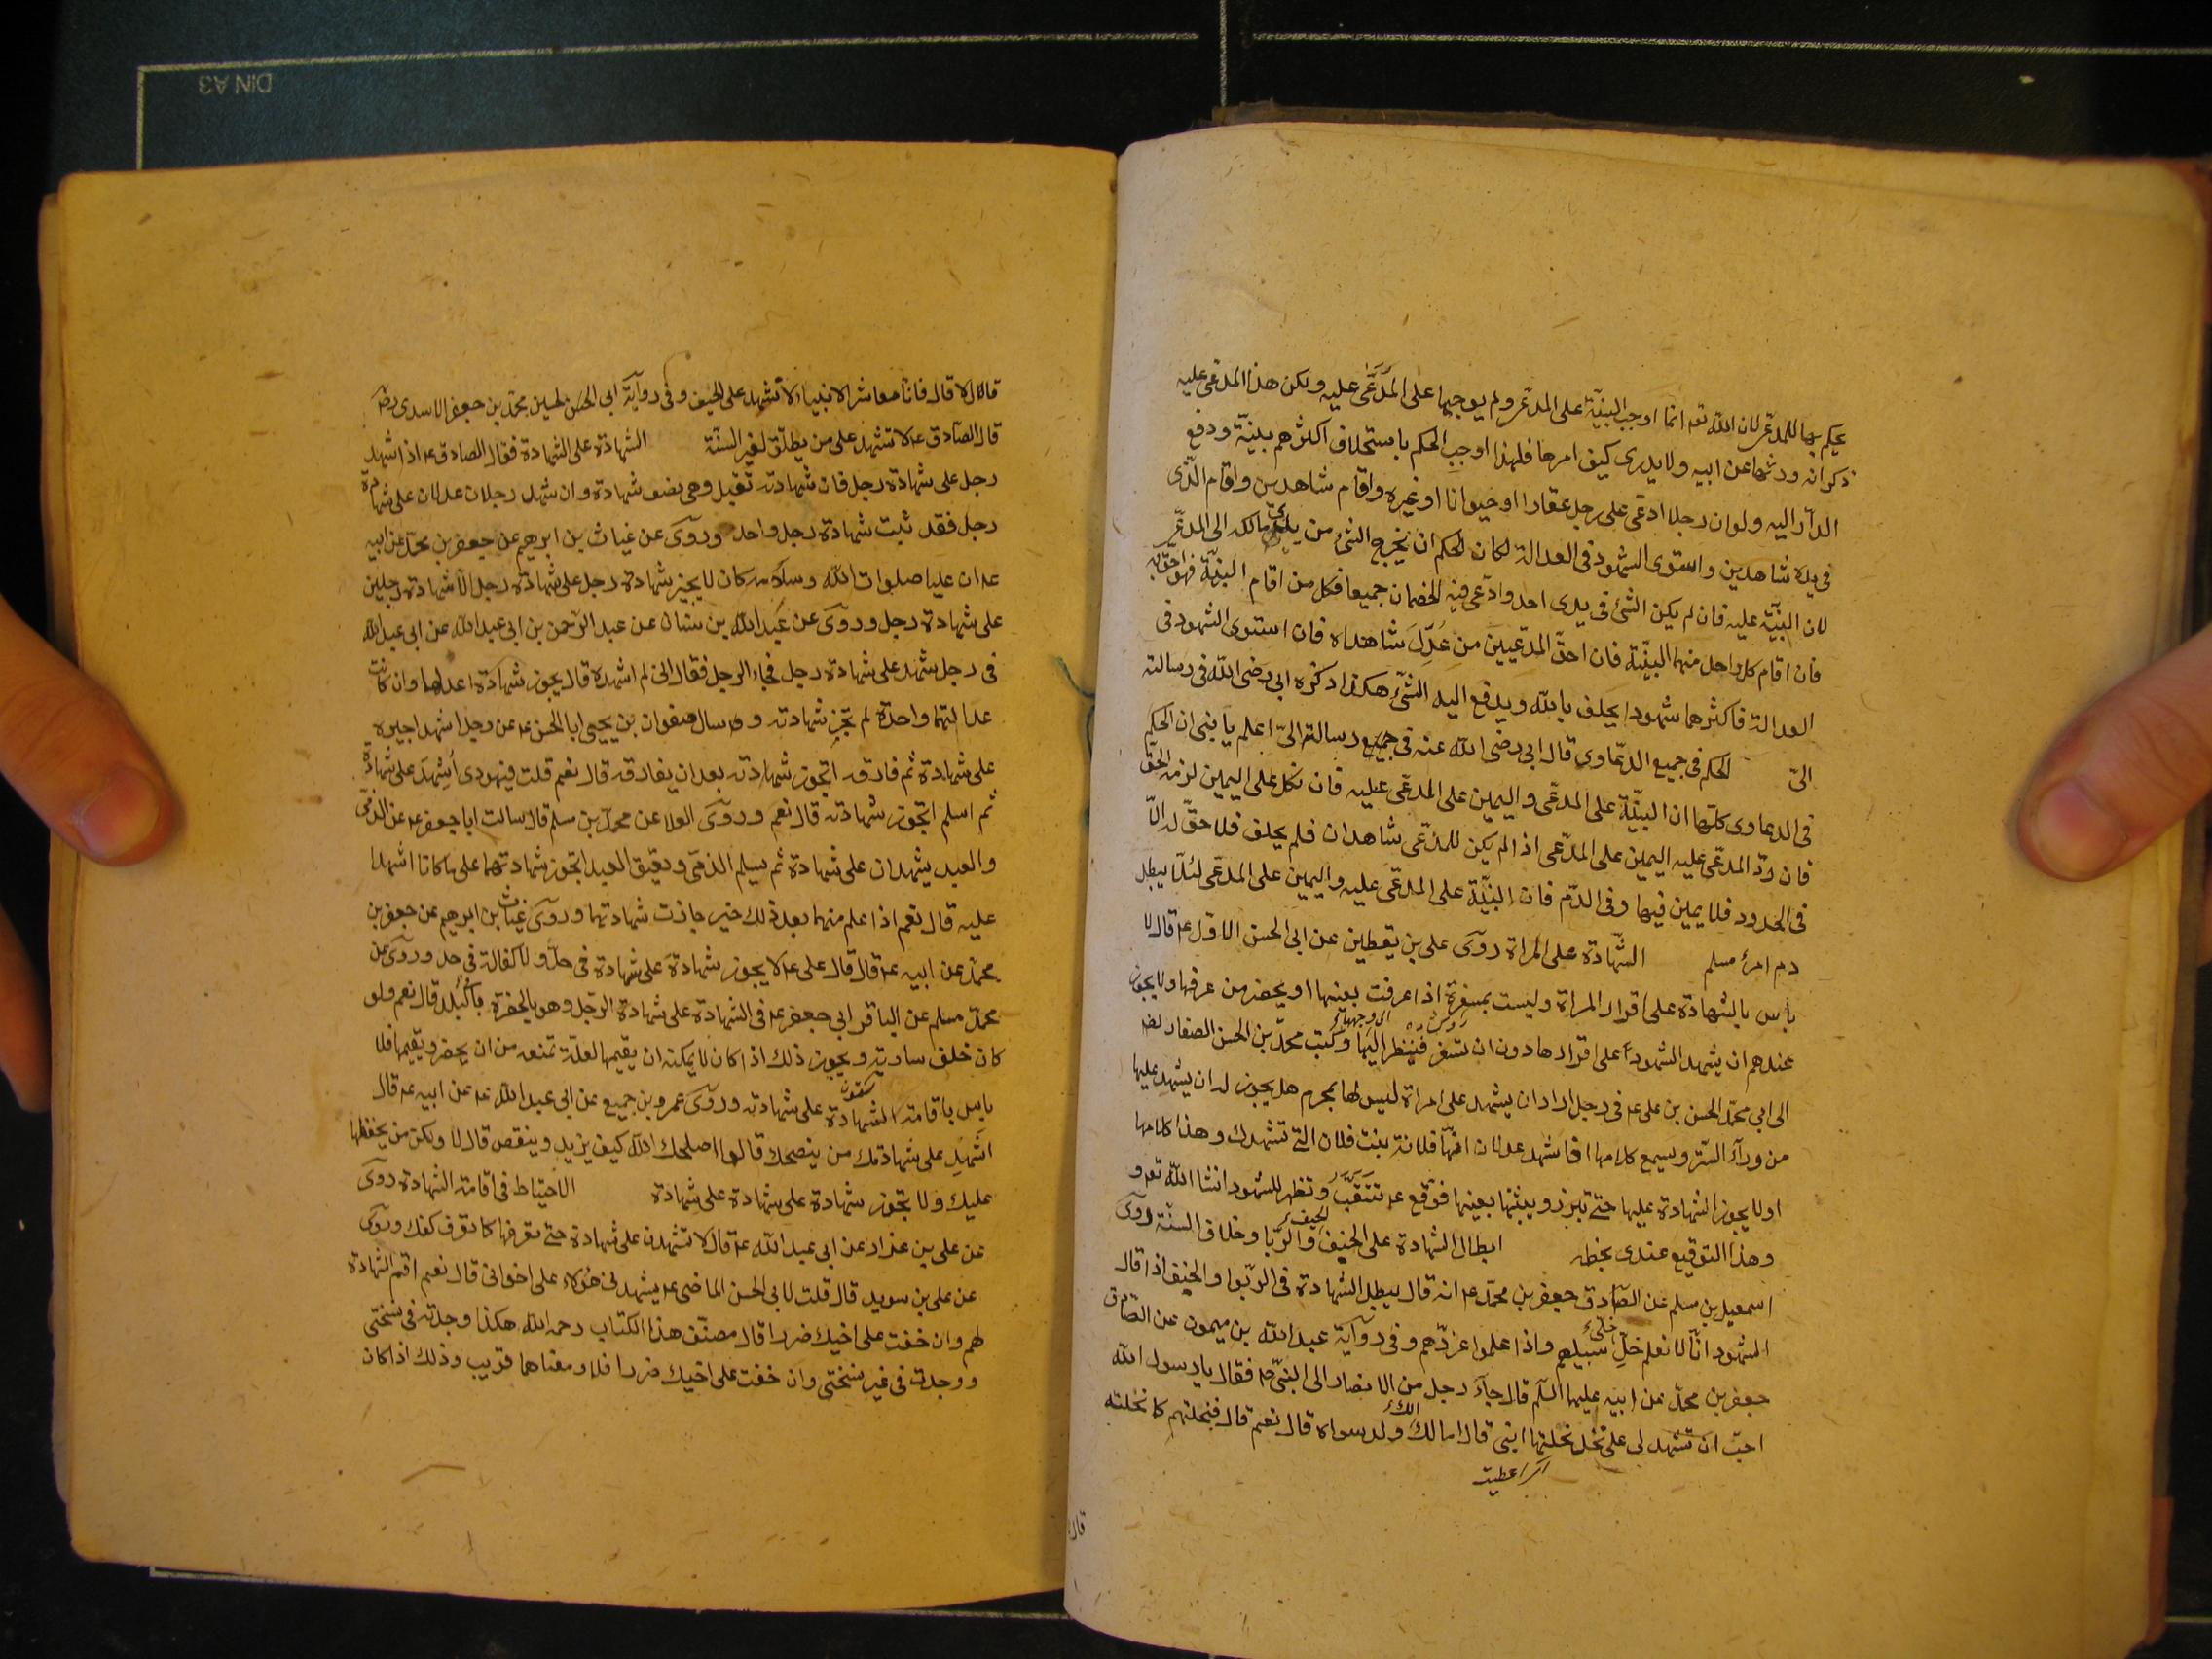 يحكم بها للمدعى لان الله تعه انما اوجب البينة على المدعى ولم يوجبها على المدّعى عليه ولكن هذا المدعى عليه
ذكر انه ورثها عن ابيه ولا يدرى كيف امرها فلهذا اوجب الحكم باستحلاف اكثرهم بينة ودفع
الدار اليه ولو ان رجلا ادعى على رجل عقارا او حيوانا او غيره واقام شاهدين واقام الذى
فى يده شاهدين واستوى الشهود فى العدالة لكان الحكم ان يخرج الشئ من يدى مالكه الى المدعى
لان البينة عليه فان لم يكن الشئ فى يدى احد وادعى فيه الخصمان جميعا فكل من اقام البينة فهو احق به
فان اقام كل واحد منهما البينة فان احق المدعيين من عدّل شاهداه فان استوى الشهود فى
العدالة فاكثرهما شهودا يحلف بالله ويدفع اليه الشئ هكذا ذكره ابى رضى الله فى رسالته
الىّ الحكم فى جميع الدعاوى قال ابى رضى الله عنه فى جميع رسالته الىّ اعلم يا بنى ان الحكم
فى الدعاوى كلها ان البينة على المدعى واليمين على المدعى عليه فان نكل على اليمين لزمه الحق
فان ردّ المدعى عليه اليمين على المدعى اذا لم يكن للمدعى شاهدان فلم يحلف فلا حق له الّا
فى الحدود فلا يمين فيها وفى الدم فان البينة على المدعى عليه واليمين على المدعى لئلا يبطل
دم امرئ مسلم الشهادة على المراة روى على بن يقطين عن ابى الحسن الاول عه قال لا
باس بالشهادة على اقرار المراة وليست بمسفرة اذا عرفت بعينها او يحضر من عرفها ولا يجوز
عندهم ان يشهد الشهود على اقرارها دون ان تسفر فينظر اليها وكتب محمد بن الحسن الصفار رضه
الى ابى محمد الحسن بن على عه فى رجل اراد ان يشهد على امراة ليس لها بمحرم هل يجوز له ان يشهد عليها
من ورآء الستر وسمع كلامها اذا شهد عدلان انها فلانة بنت فلان التى تشهدك وهذا كلامها
او لا يجوز الشهادة عليها حتى تبرز ويثبتها بعينها فوقع عه تتنقب وتظهر للشهود انشا الله تعه و
وهذا التوقيع عندى بخطه ابطال الشهادة على الحنيف والربا وخلاف السنة روى
اسمعيل بن مسلم عن الصادق جعفر بن محمد عه انه قال يبطل الشهادة فى الربوا والحنيف اذا قال
الشهود انا لا نعلم خلّ سبيلهم واذا علموا عزرهم وفى رواية عبد الله بن ميمون عن الصادق
جعفر بن محمد عن ابيه عليهما السلم قال جآء رجل من الانصار الى النبى صه فقال يا رسول الله
احب ان تشهد لى على نخل نحلتها ابنى قال امالك ولد سواه قال نعم قال فنحلتهم كما نحلته
قال لا قال فانا معاشر الانبياء لا نشهد على الحنيف وفى رواية ابى الحسين محمد بن جعفر الاسدى رضه
قال الصادق عه لا تشهد على من يطلق لغير السنة الشهادة على الشهادة فقال الصادق عه اذا شهد
رجل على شهادة رجل فان شهادته تقبل وهى نصف شهادة وان شهد رجلان عدلان على شهادة
رجل فقد ثبت شهادة رجل واحد وروى عن غياث بن ابرهيم عن جعفر بن محمد عن ابيه
عه ان عليا صلوات الله وسلامه كان لا يجيز شهادة رجل على شهادة رجل الا شهادة رجلين
على شهادة رجل وروى عن عبد الله بن سنان عن عبد الرحمن بن ابى عبد الله عن ابى عبد الله
فى رجل شهد على شهادة رجل فجاء الرجل فقال انى لم اشهده قال يجوز شهادة اعدلهما وان كانت
عدالتهما واحدة لم تجز شهادته وسال صفوان بن يحيى ابا الحسن عه عن رجل اشهد اجيره
على شهادة ثم فارقه اتجوز شهادته بعد ان يفارقه قال نعم قلت فيهودى أشهد على شهادة
ثم اسلم اتجوز شهادته قال نعم وروى العلا عن محمد بن مسلم قال سالت ابا جعفر عه عن الذمى
والعبد يشهدان على شهادة ثم يسلم الذمى ويعتق العبد اتجوز شهادتهما على ما كانا اشهدا
عليه قال نعم اذا علم منهما بعد ذلك خير جازت شهادتهما وروى غياث بن ابرهيم عن جعفر بن
محمد عن ابيه عه قال قال على عه لا يجوز شهادة على شهادة فى حد ولا كفالة فى حد وروى عن
محمد مسلم عن الباقر ابى جعفر عه فى الشهادة على شهادة الرجل وهو بالحضرة بالبلد قال نعم ولو
كان خلف سارية ويجوز ذلك اذا كان لا يمكنه ان يقيمها لعلة تمنعه من ان يحضر ويقيمها فلا
باس باقامة الشهادة على شهادته وروى عمرو بن جميع عن ابى عبد الله عه عن ابيه عه قال
اشهد على شهادتك من ينصحك قالوا اصلحك الله كيف يزيد وينقص قال لا ولكن من يحفظها
عليك ولا تجوز شهادة على شهادة على شهادة الاحتياط فى اقامة الشهادة روى
عن على بن غراب عن ابى عبد الله عه قال لا تشهدن على شهادة حتى تعرفها كما تعرف كفك وروى
عن على بن سويد قال قلت لابى الحسن الماضى عه يشهدنى هؤلاء على اخوانى قال نعم اقم الشهادة
لهم وان خفت على اخيك ضررا قال مصنف هذا الكتاب رحمه الله هكذا وجدته فى نسختى
ووجدت فى غير نسختى وان خفت على اخيك ضررا فلا ومعناهما قريب وذلك اذا كان